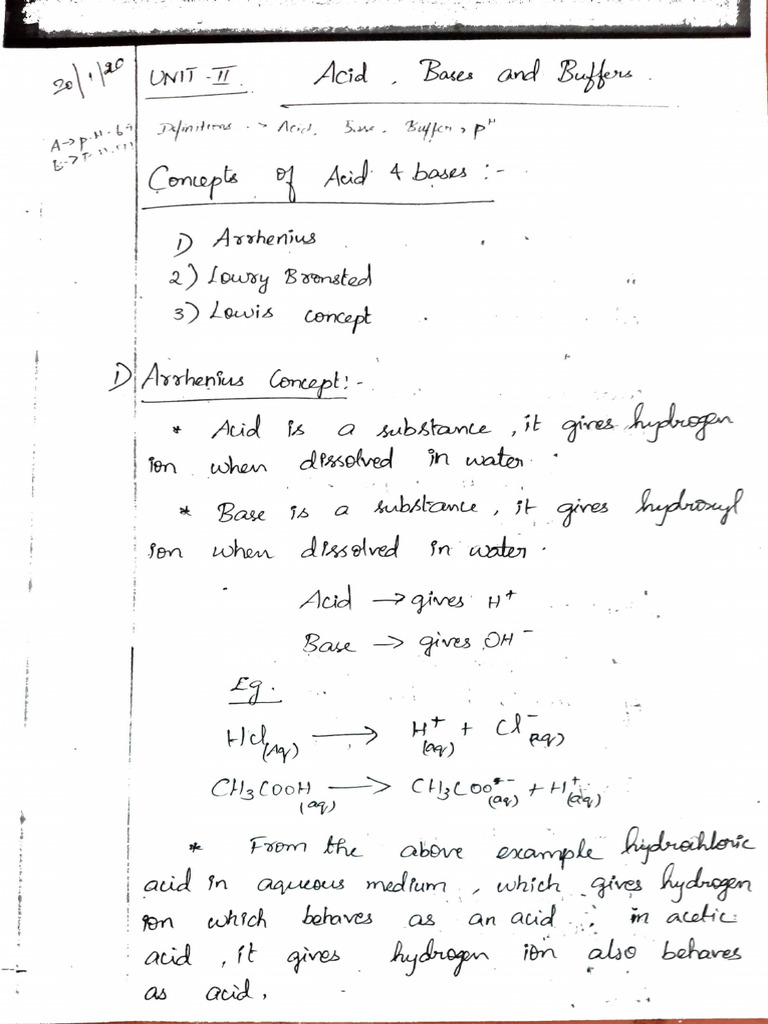 20/1/20 UNIT - II Acid, Bases and Buffers.
Definitions -> Acid, Base, Buffer, pH
Concepts of Acid & bases :-
1) Arrhenius
2) Lowry Bronsted
3) Lowis concept
1) Arrhenius Concept:-
* Acid is a substance, it gives hydrogen
ion when dissolved in water.
* Base is a substance, it gives hydroxyl
ion when dissolved in water.
Acid → gives H⁺
Base → gives OH⁻
Eg.
Hcl(Aq) → H⁺(aq) + Cl⁻(aq)
CH₃COOH(aq) → CH₃COO⁻(aq) + H⁺(aq)
* From the above example hydrochloric
acid in aqueous medium, which gives hydrogen
ion which behaves as an acid ; in acetic
acid, it gives hydrogen ion also behaves
as acid.